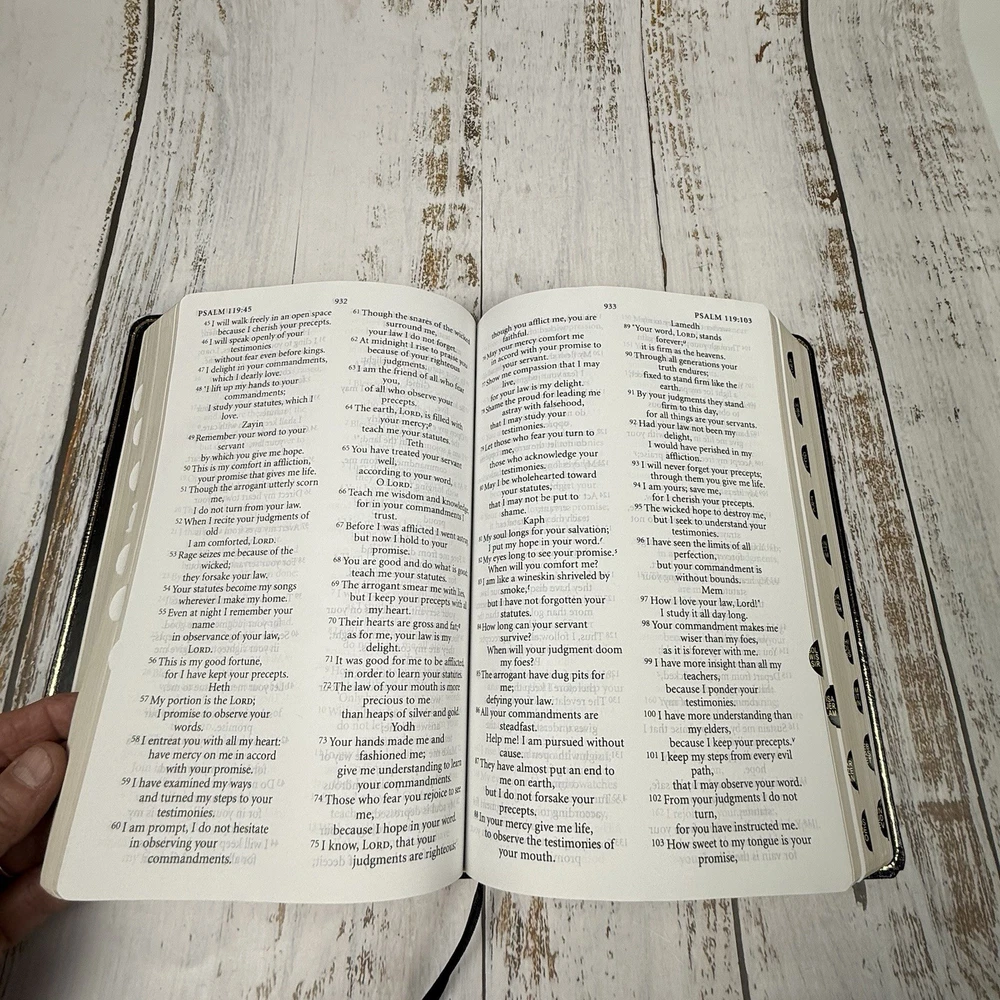 PSALM 119:45
932
45 I will walk freely in an open space
because I cherish your precepts.
46 I will speak openly of your
testimonies
without fear even before kings.
47 I delight in your commandments,
which I dearly love.
48 I lift up my hands to your
commandments;
I study your statutes, which I
love.
Zayin
49 Remember your word to your
servant
by which you give me hope.
50 This is my comfort in affliction,
your promise that gives me life.
51 Though the arrogant utterly scorn
me,
I do not turn from your law.
52 When I recite your judgments of
old
I am comforted, LORD.
53 Rage seizes me because of the
wicked;
they forsake your law.
54 Your statutes become my songs
wherever I make my home.
55 Even at night I remember your
name
in observance of your law,
LORD.
56 This is my good fortune,
for I have kept your precepts.
Heth
57 My portion is the LORD;
I promise to observe your
words.
58 I entreat you with all my heart:
have mercy on me in accord
with your promise.
59 I have examined my ways
and turned my steps to your
testimonies.
60 I am prompt, I do not hesitate
in observing your
commandments.
61 Though the snares of the wicked
surround me,
your law I do not forget.
62 At midnight I rise to praise you
because of your righteous
judgments.
63 I am the friend of all who fear
you,
of all who observe your
precepts.
64 The earth, LORD, is filled with
your mercy;
teach me your statutes.
Teth
65 You have treated your servant
well,
according to your word,
O LORD.
66 Teach me wisdom and knowledge,
for in your commandments I
trust.
67 Before I was afflicted I went astray,
but now I hold to your
promise.
68 You are good and do what is good;
teach me your statutes.
69 The arrogant smear me with lies,
but I keep your precepts with all
my heart.
70 Their hearts are gross and fat;
as for me, your law is my
delight.
71 It was good for me to be afflicted,
in order to learn your statutes.
72 The law of your mouth is more
precious to me
than heaps of silver and gold.
Yodh
73 Your hands made me and
fashioned me;
give me understanding to learn
your commandments.
74 Those who fear you rejoice to see
me,
because I hope in your word.
75 I know, LORD, that your
judgments are righteous;
933
PSALM 119:103
though you afflict me, you are
faithful.
May your mercy comfort me
in accord with your promise to
your servant.
Show me compassion that I may
live,
for your law is my delight.
Shame the proud for leading me
astray with falsehood,
that I may study your
testimonies.
Let those who fear you turn to
me,
those who acknowledge your
testimonies.
May I be wholehearted toward
your statutes,
that I may not be put to
shame.
Kaph
My soul longs for your salvation;
I put my hope in your word.r
My eyes long to see your promise.s
When will you comfort me?
I am like a wineskin shriveled by
smoke,t
but I have not forgotten your
statutes.
How long can your servant
survive?
When will your judgment doom
my foes?
The arrogant have dug pits for
me;
defying your law.
All your commandments are
steadfast.
Help me! I am pursued without
cause.
They have almost put an end to
me on earth,
but I do not forsake your
precepts.
In your mercy give me life,
to observe the testimonies of
your mouth.
Lamedh
89 Your word, LORD, stands
forever;
it is firm as the heavens.
90 Through all generations your
truth endures;
fixed to stand firm like the
earth.
91 By your judgments they stand
firm to this day,
for all things are your servants.
92 Had your law not been my
delight,
I would have perished in my
affliction.
93 I will never forget your precepts;
through them you give me life.
94 I am yours; save me,
for I cherish your precepts.
95 The wicked hope to destroy me,
but I seek to understand your
testimonies.
96 I have seen the limits of all
perfection,
but your commandment is
without bounds.
Mem
97 How I love your law, Lord!
I study it all day long.
98 Your commandment makes me
wiser than my foes,
as it is forever with me.
99 I have more insight than all my
teachers,
because I ponder your
testimonies.
100 I have more understanding than
my elders,
because I keep your precepts.v
101 I keep my steps from every evil
path,
that I may observe your word.
102 From your judgments I do not
turn,
for you have instructed me.
103 How sweet to my tongue is your
promise,
WIS
SIR
ISA
JER
LAM